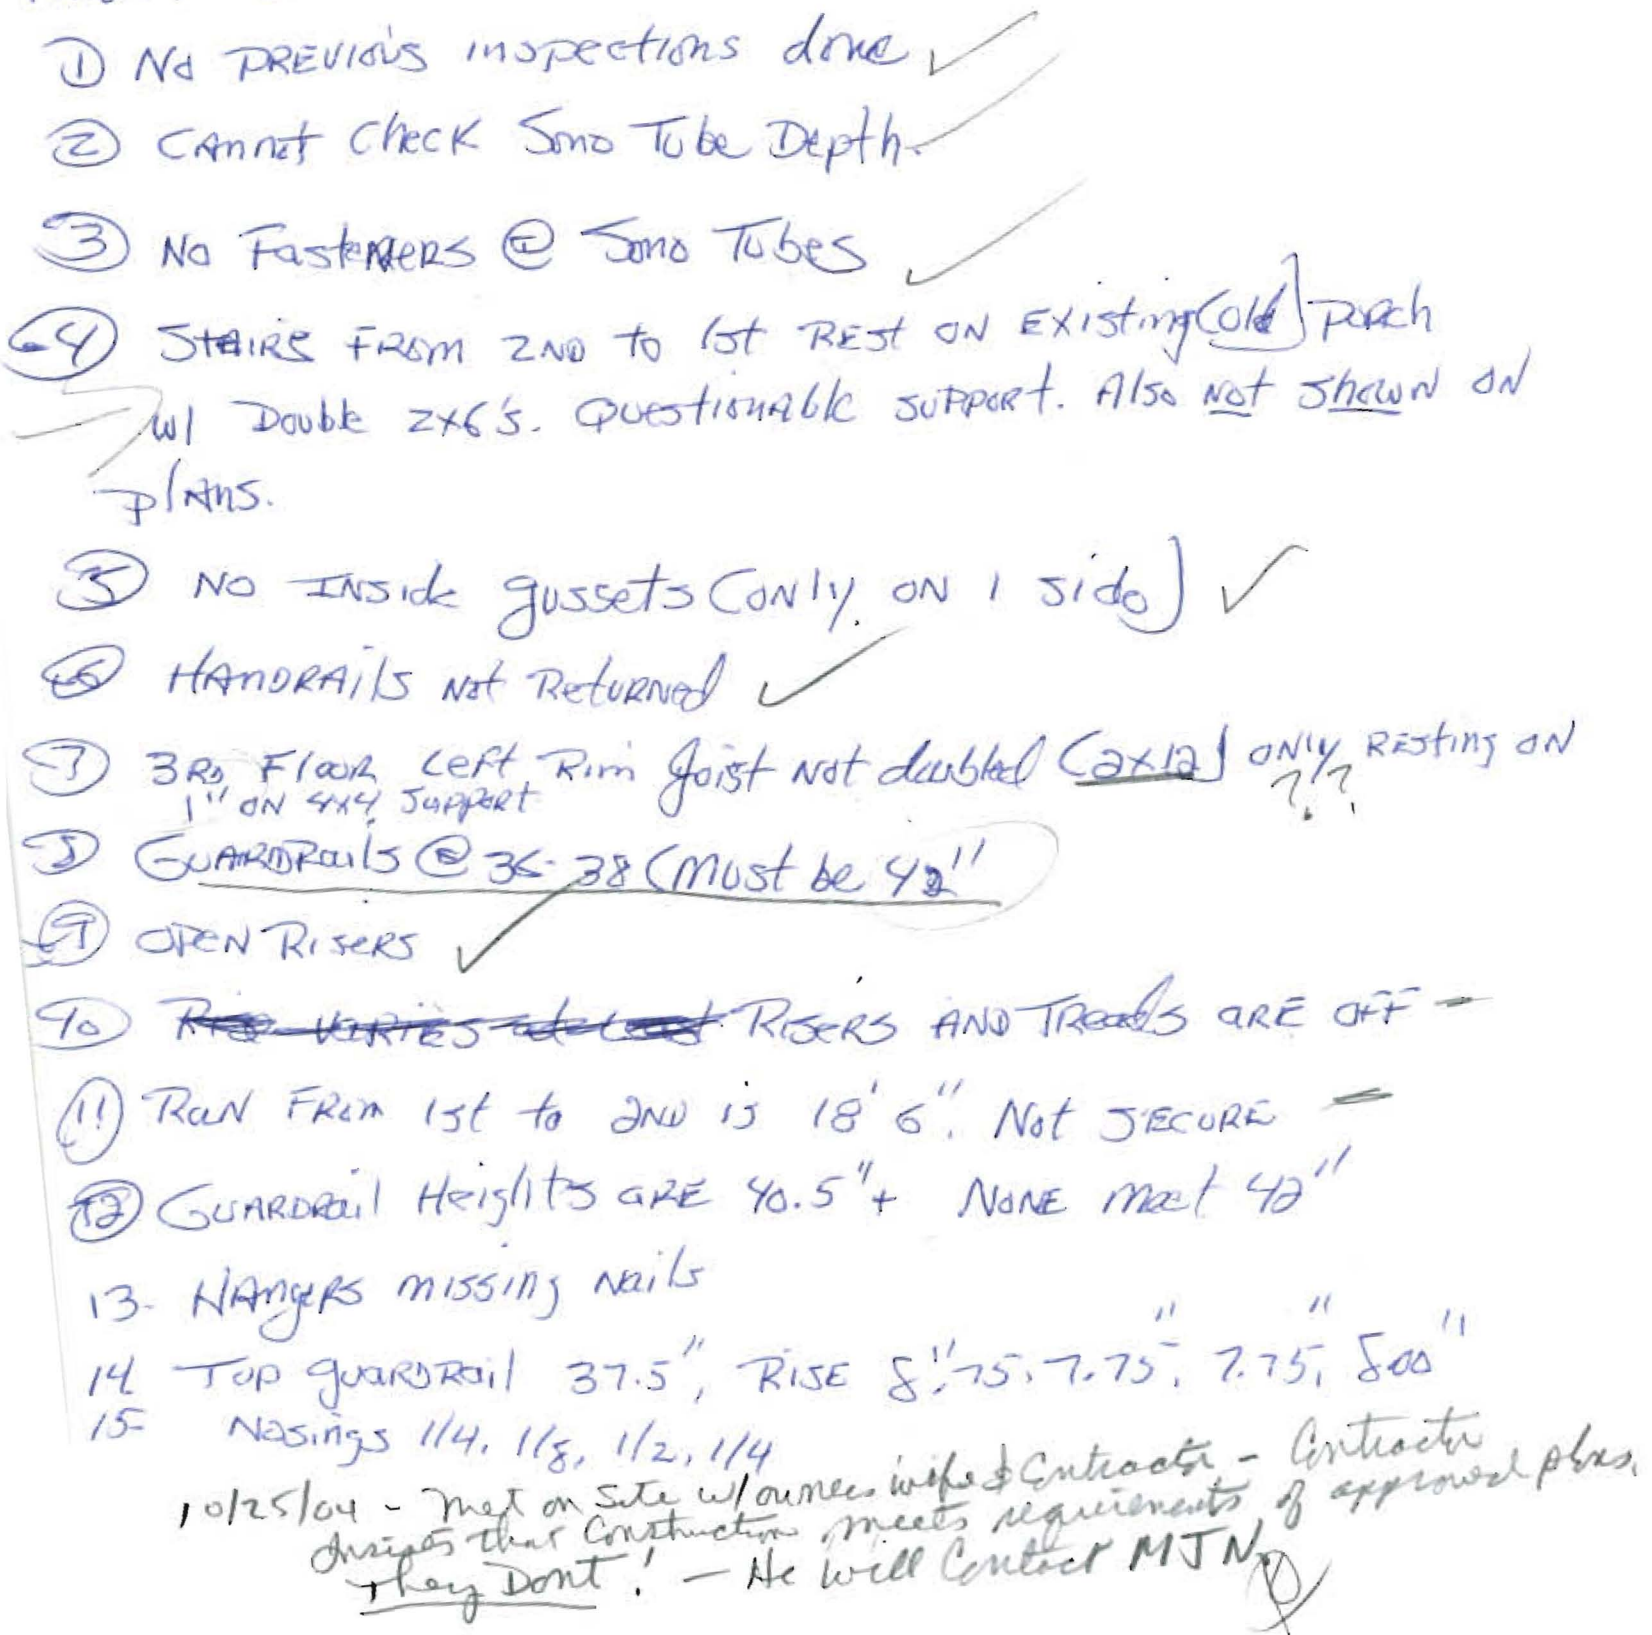 ① No PREVIOUS inspections done ✓
② CANNOT Check Sono Tube Depth.
③ No Fasteners @ Sono Tubes ✓
④ STAIRS FROM 2ND to 1st REST ON Existing (old) porch
w/ Double 2x6's. Questionable support. Also not shown on
plans.
⑤ NO INSide gussets (only on 1 side) ✓
⑥ HANDRAils Not Returned ✓
⑦ 3RD Floor Left Rim Joist Not doubled (2x12) only Resting on
1" ON 4x4 Support ?.?.
⑧ GUARDRails @ 36-38 (Must be 42"
⑨ OPEN RISERS ✓
⑩ RISERS AND TReads are off -
⑪ Run From 1st to 2nd is 18' 6". Not SECURE -
⑫ GUARDRail Heights are 40.5"+ NONE meet 42"
13- HANgers missing Nails
14 Top guardrail 37.5", Rise 8".75, 7.75", 7.75", 8.00"
15- Nosings 1/4, 1/8, 1/2, 1/4
10/25/04 - Met on Site w/owners wife & Contractor - Contractor
that Construction meets requirements of approved plans.
They Dont! - He will Contact MJN.